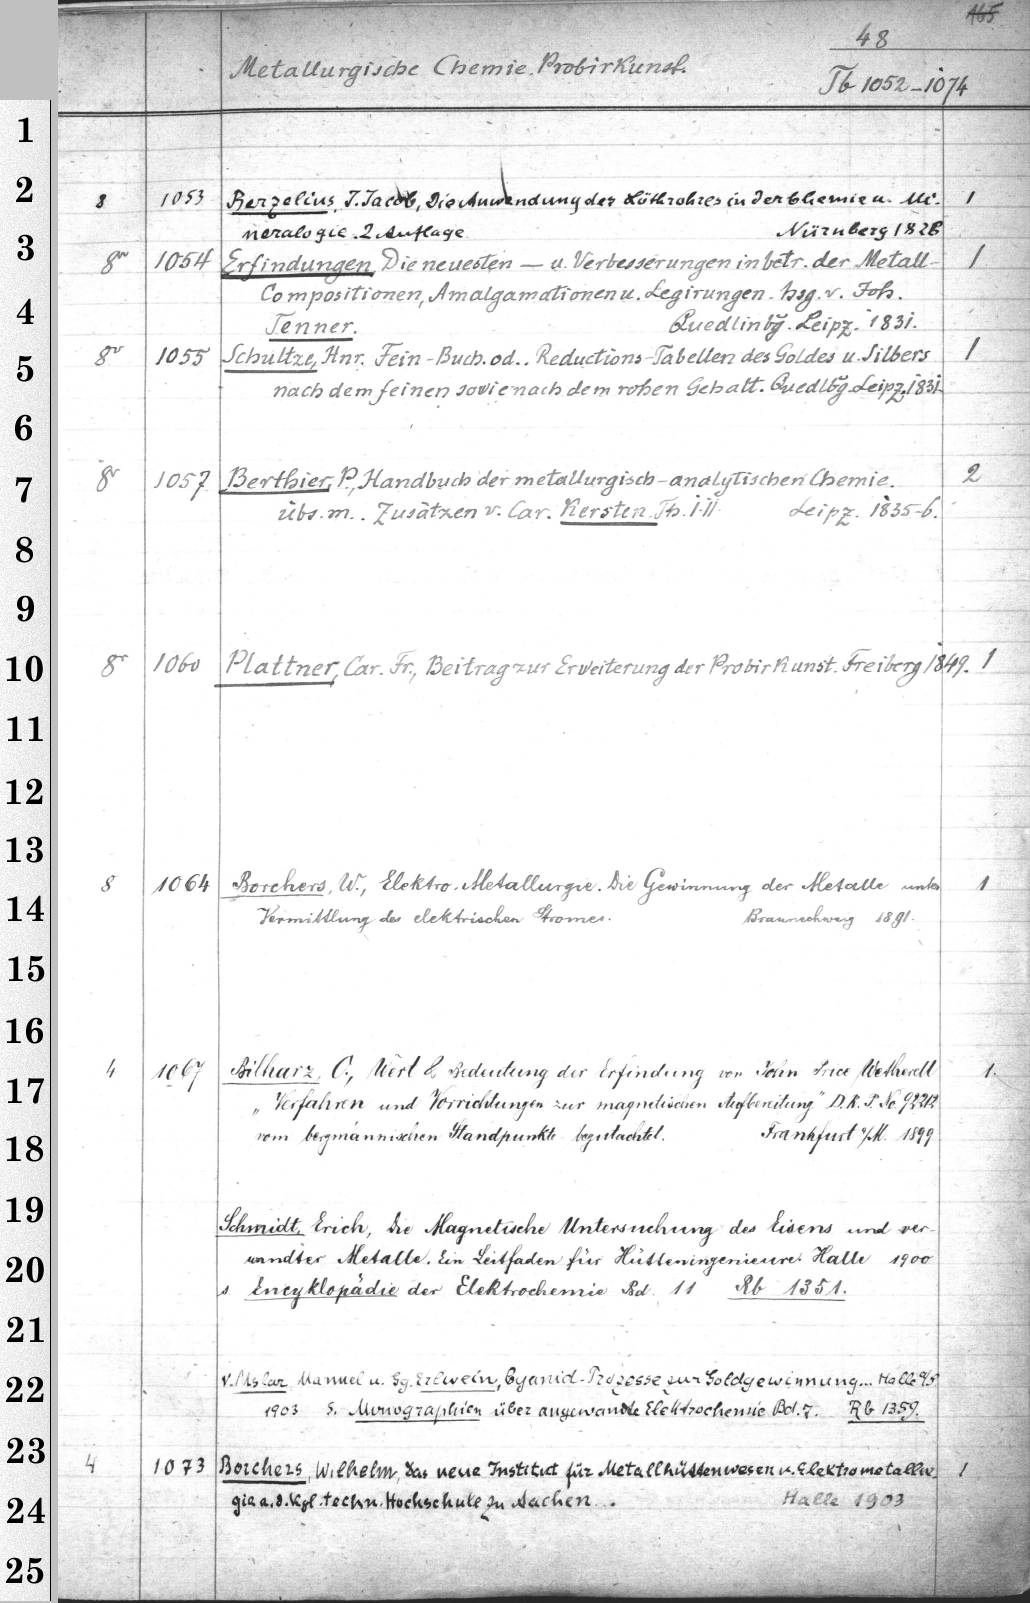 165
48
Metallurgische Chemie. Probirkunst.
Tb 1052-1074
1
2
3
4
5
6
7
8
9
10
11
12
13
14
15
16
17
18
19
20
21
22
23
24
25
8 1053 Berzelius, J. Jacob, Die Anwendung des Löthrohres in der Chemie u. Mi- 1
neralogie. 2 Auflage Nürnberg 1828
8° 1054 Erfindungen, Die neuesten — u. Verbesserungen in betr. der Metall- 1
Compositionen, Amalgamationen u. Legirungen. hsg. v. Joh.
Tenner. Quedlinbg. Leipz. 1831.
8° 1055 Schultze, Hnr. Fein-Buch. od.. Reductions-Tabellen des Goldes u. Silbers 1
nach dem feinen sowie nach dem rohen Gehalt. Quedlbg. Leipz. 1831.
8° 1057 Berthier, P., Handbuch der metallurgisch-analytischen Chemie. 2
übs. m.. Zusätzen v. Car. Kersten. Th. I-II. Leipz. 1835-6.
8° 1060 Plattner, Car. Fr., Beitrag zur Erweiterung der Probirkunst. Freiberg 1849. 1
8 1064 Borchers, W., Elektro-Metallurgie. Die Gewinnung der Metalle unter 1
Vermittlung des elektrischen Stromes. Braunschweig 1891.
4 1067 Bilharz, O., Wert & Bedeutung der Erfindung von John Price Wetherell 1.
„Verfahren und Vorrichtungen zur magnetischen Aufbereitung" D.R.P. No. 92212
vom bergmännischen Standpunkte begutachtet. Frankfurt a/M. 1899
Schmidt, Erich, Die Magnetische Untersuchung des Eisens und ver-
wandter Metalle. Ein Leitfaden für Hütteningenieure. Halle 1900
s Encyklopädie der Elektrochemie Bd. 11 Rb 1351.
v. Uslar Manuel u. Gg. Erlwein, Cyanid-Prozesse zur Goldgewinnung... Halle a/S
1903 s. Monographien über angewandte Elektrochemie Bd. 7. Rb 1359.
4 1073 Borchers, Wilhelm, Das neue Institut für Metallhüttenwesen u. Elektrometallur- 1
gie a. d. Kgl. techn. Hochschule zu Aachen. . Halle 1903